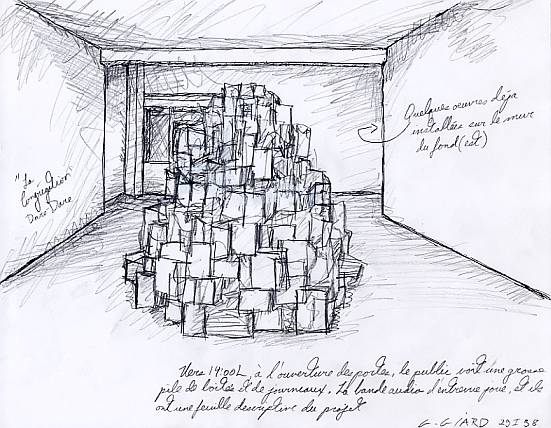 Quelques oeuvres déja
installées sur le mur
du fond (est)
"La
Congrégation"
Dare-Dare
Vers 14:00 h, à l'ouverture des portes, le public voit une grosse
pile de boîtes et de journeaux. La bande audio d'entrevue joue, et ils
ont une feuille descriptive du projet
G. GIARD 29 I 98